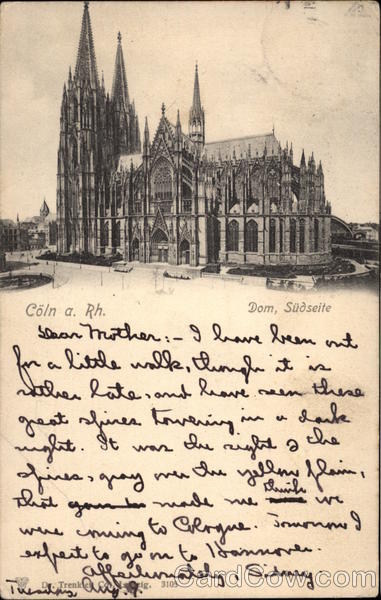 Cöln a. Rh.
Dom, Südseite
Dear Mother:- I have been out
for a little walk, though it is
rather late, and have seen these
great spires towering in a dark
night. It was the sight of the
spires, gray over the yellow plain,
that made me think we
were coming to Cologne. Tomorrow I
expect to go on to Hannover.
Affectionately Sidney
Dr. Trenkler Co., Leipzig. 3103
Tuesday Aug.
CardCow.com